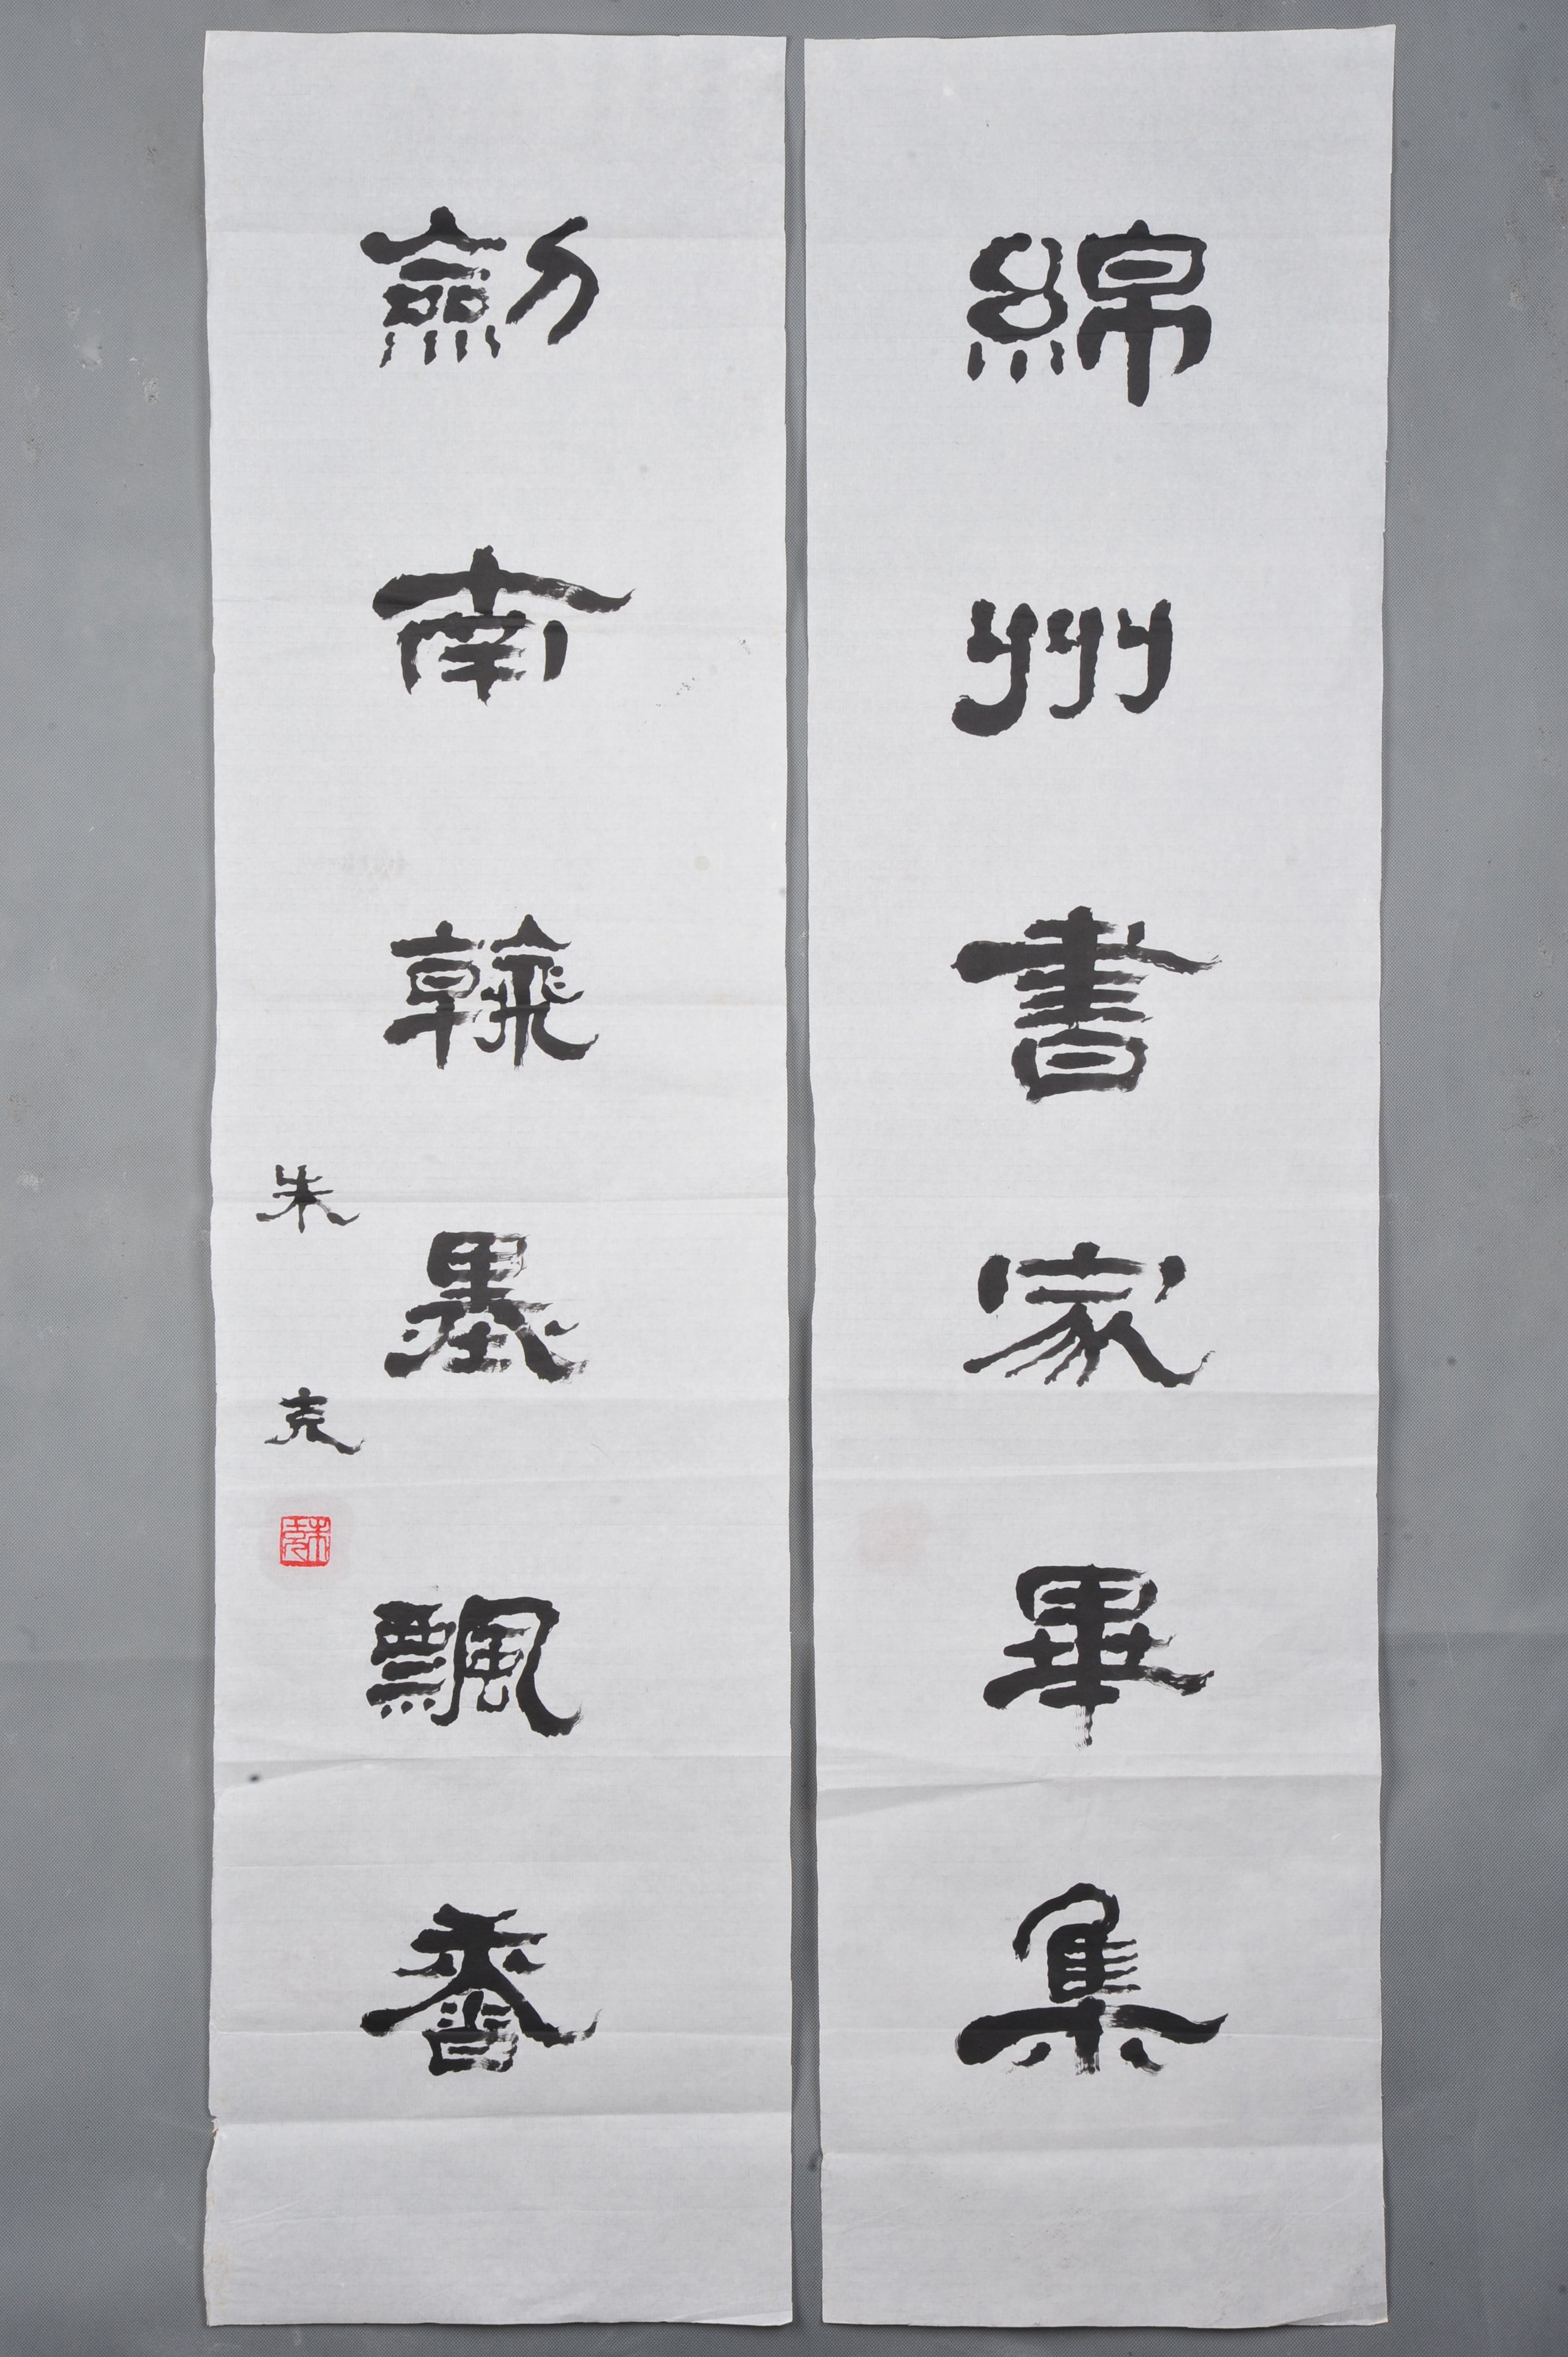 綿州書家畢集
劔南翰墨飄香
朱克
朱克